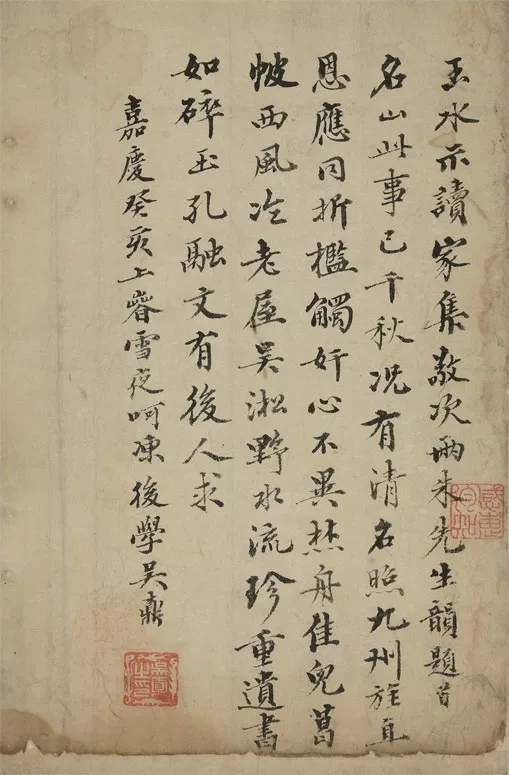 玉水示讀家集敬次兩朱先生韻題首
名山此事已千秋況有清名照九州旌直
恩應同折檻觸奸心不異焚舟佳兒葛
帔西風冷老屋吳淞野水流珍重遺書
如碎玉孔融文有後人求
嘉慶癸亥上春雪夜呵凍後學吳鼒